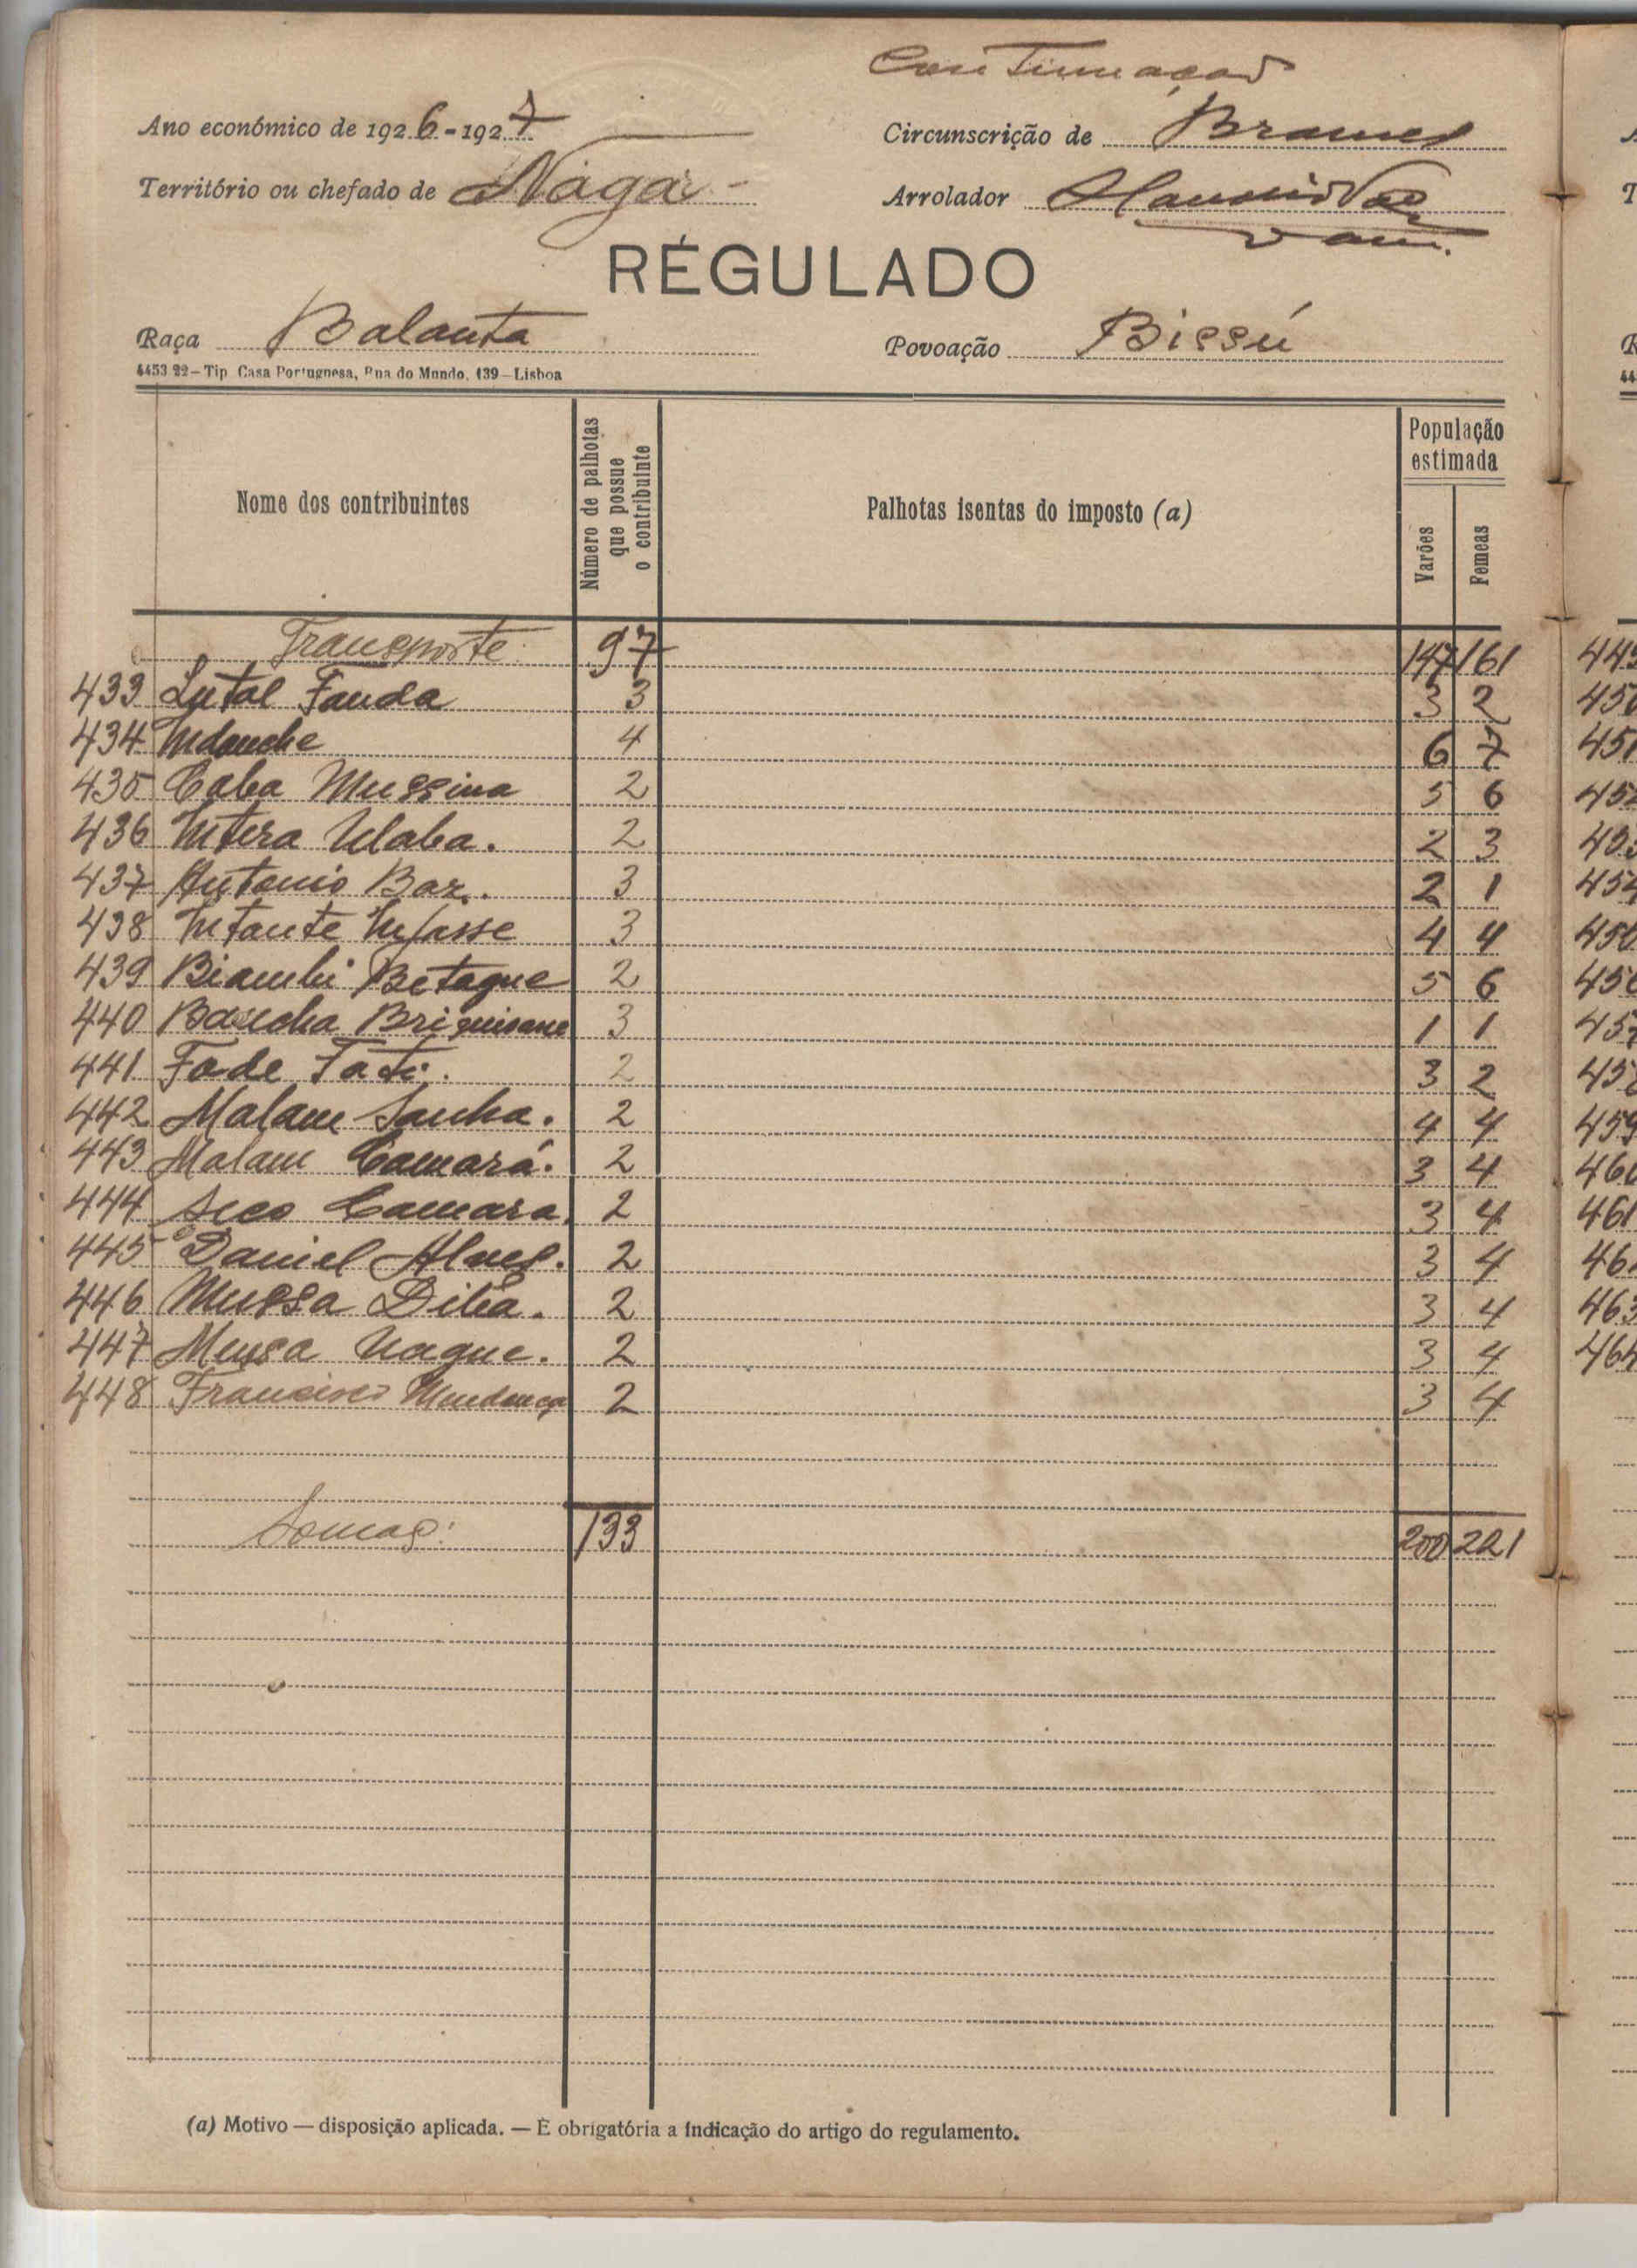 Continuação
Ano económico de 1926-1927
Circunscrição de Brames
Território ou chefado de Naga -
Arrolador
RÉGULADO
Raça Balanta
Povoação Bissú
4453 22—Tip. Casa Portuguesa, Rua do Mundo, 139—Lisboa
Nome dos contribuintes
Número de palhotas que possue o contribuinte
Palhotas isentas do imposto (a)
População estimada
Varões
Femeas
Transporte 97 147 161
433 Lutal Fanda 3 3 2
434 4 6 7
435 Caba Mussina 2 5 6
436 2 2 3
437 Antonio Baz. 3 2 1
438 3 4 4
439 Biambi Betague 2 5 6
440 3 1 1
441 Fode Fati. 2 3 2
442 Malam Sanha. 2 4 4
443 Malam Camará. 2 3 4
444 Seco Camara. 2 3 4
445 Daniel Alves. 2 3 4
446 Mussa Dibá. 2 3 4
447 Mussa Nague. 2 3 4
448 Francisco Mendonça 2 3 4
Somas: 133 200 221
(a) Motivo — disposição aplicada. — É obrigatória a indicação do artigo do regulamento.
449
451
459
461
463
464